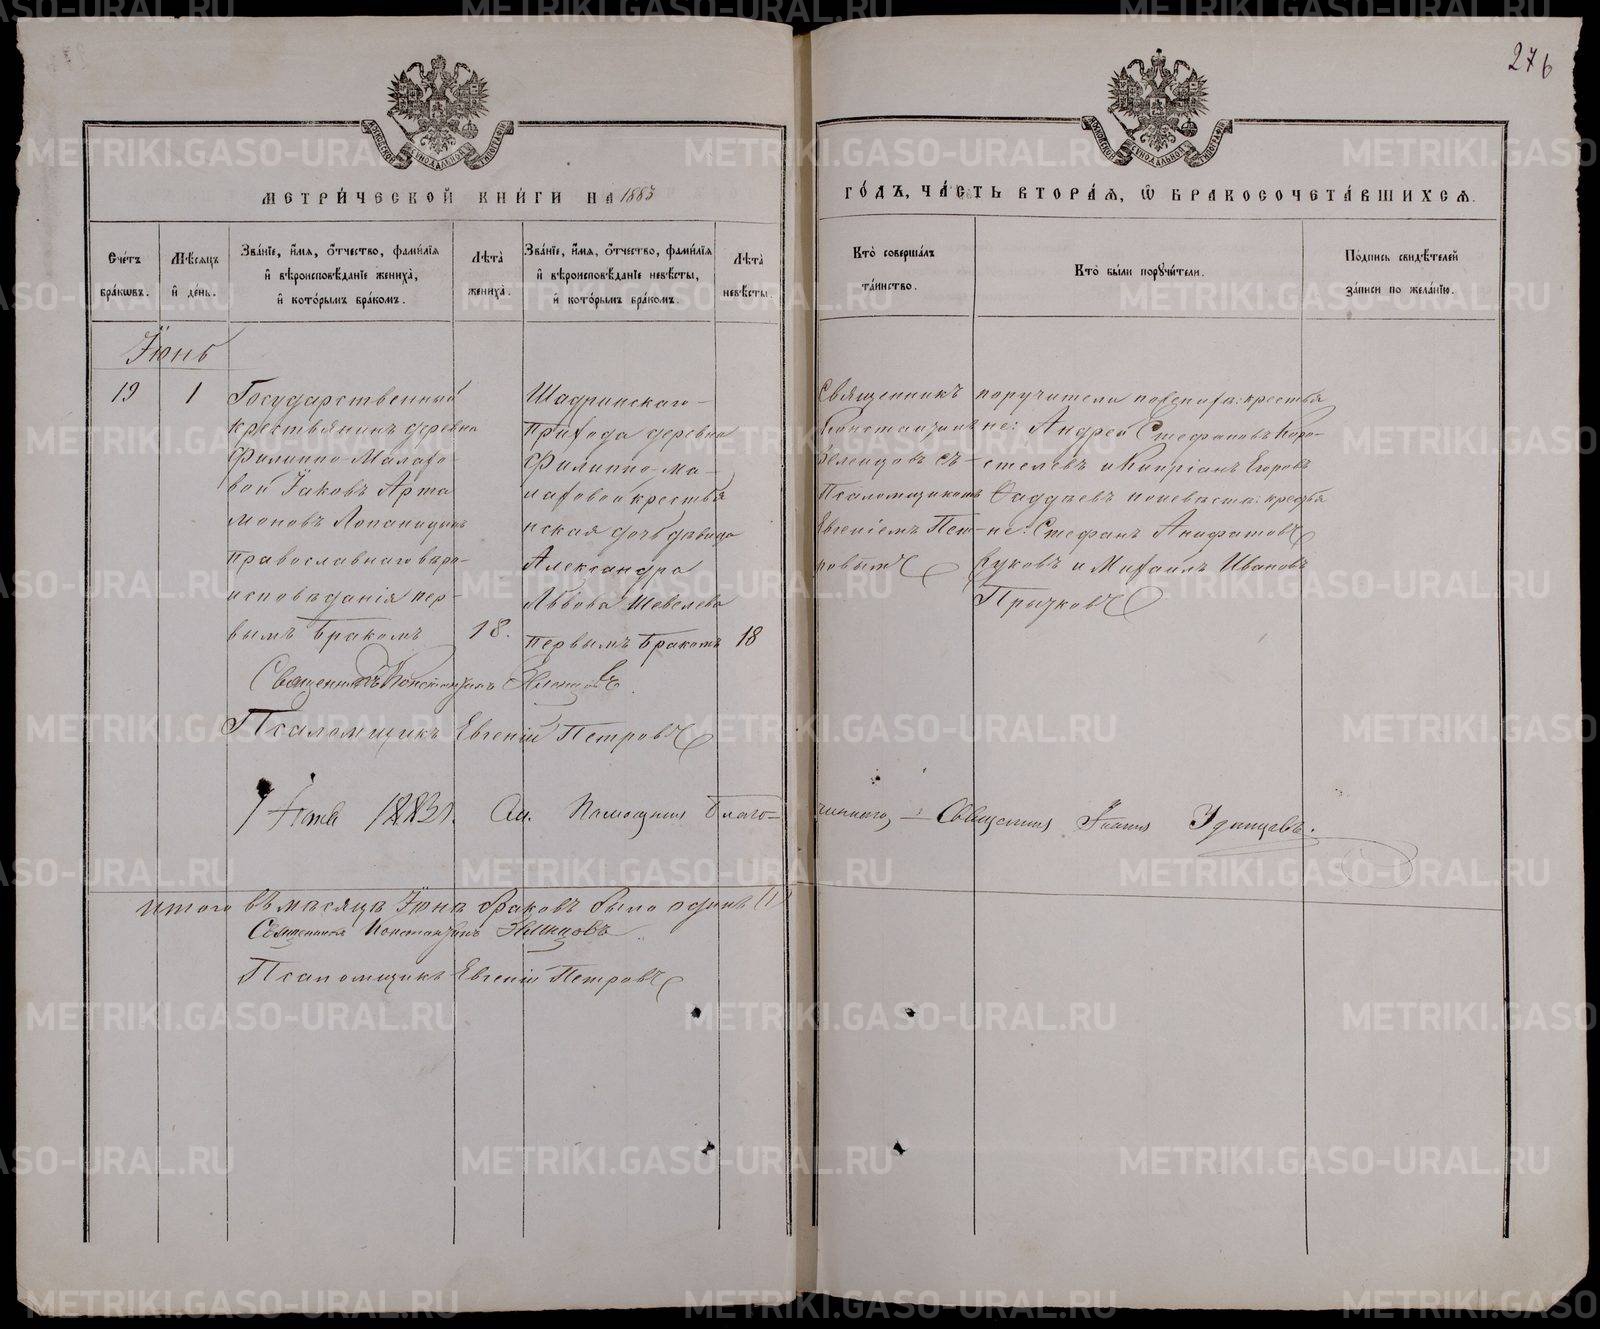 276
МЕТРИЧЕСКОЙ КНИГИ НА 1883
ГОДЪ, ЧАСТЬ ВТОРАЯ, Ѿ БРАКОСОЧЕТАВШИХСЯ.
Счетъ браковъ.
Мѣсяцъ и день.
Званіе, имя, отчество, фамилія и вѣроисповѣданіе жениха, и которымъ бракомъ.
Лѣта жениха.
Званіе, имя, отчество, фамилія и вѣроисповѣданіе невѣсты, и которымъ бракомъ.
Лѣта невѣсты.
Кто совершалъ таинство.
Кто были поручители.
Подпись свидѣтелей записи по желанію.
Іюнь
19
1
Государственный
крестьянинъ деревни
Филиппо-Малахо-
вой Іаковъ Арта
моновъ
православнаго вѣро-
исповѣданія пер-
вымъ бракомъ
18.
Шадринскаго
прихода деревни
Филиппо-Ма-
лаховой крестья
нская дочь дѣвица
Александра
Львова Шевелева
первымъ бракомъ
18
Священникъ
Константинъ
съ
Псаломщикомъ
Евгеніемъ Пет-
ровымъ
поручители по женихѣ: крестья
не: Андрей Стефановъ Коро-
стелевъ и Кипріанъ Егоровъ
Фаддѣевъ по невѣстѣ: крестья
не: Стефанъ
и Михаилъ Ивановъ
Священникъ Константинъ
Псаломщикъ Евгеній Петровъ
1883 г. Помощникъ Благо-
чиннаго, Священникъ Іоаннъ Удинцевъ.
Итого въ мѣсяцѣ Іюнѣ браковъ было одинъ (1)
Священникъ Константинъ
Псаломщикъ Евгеній Петровъ
METRIKI.GASO-URAL.RU